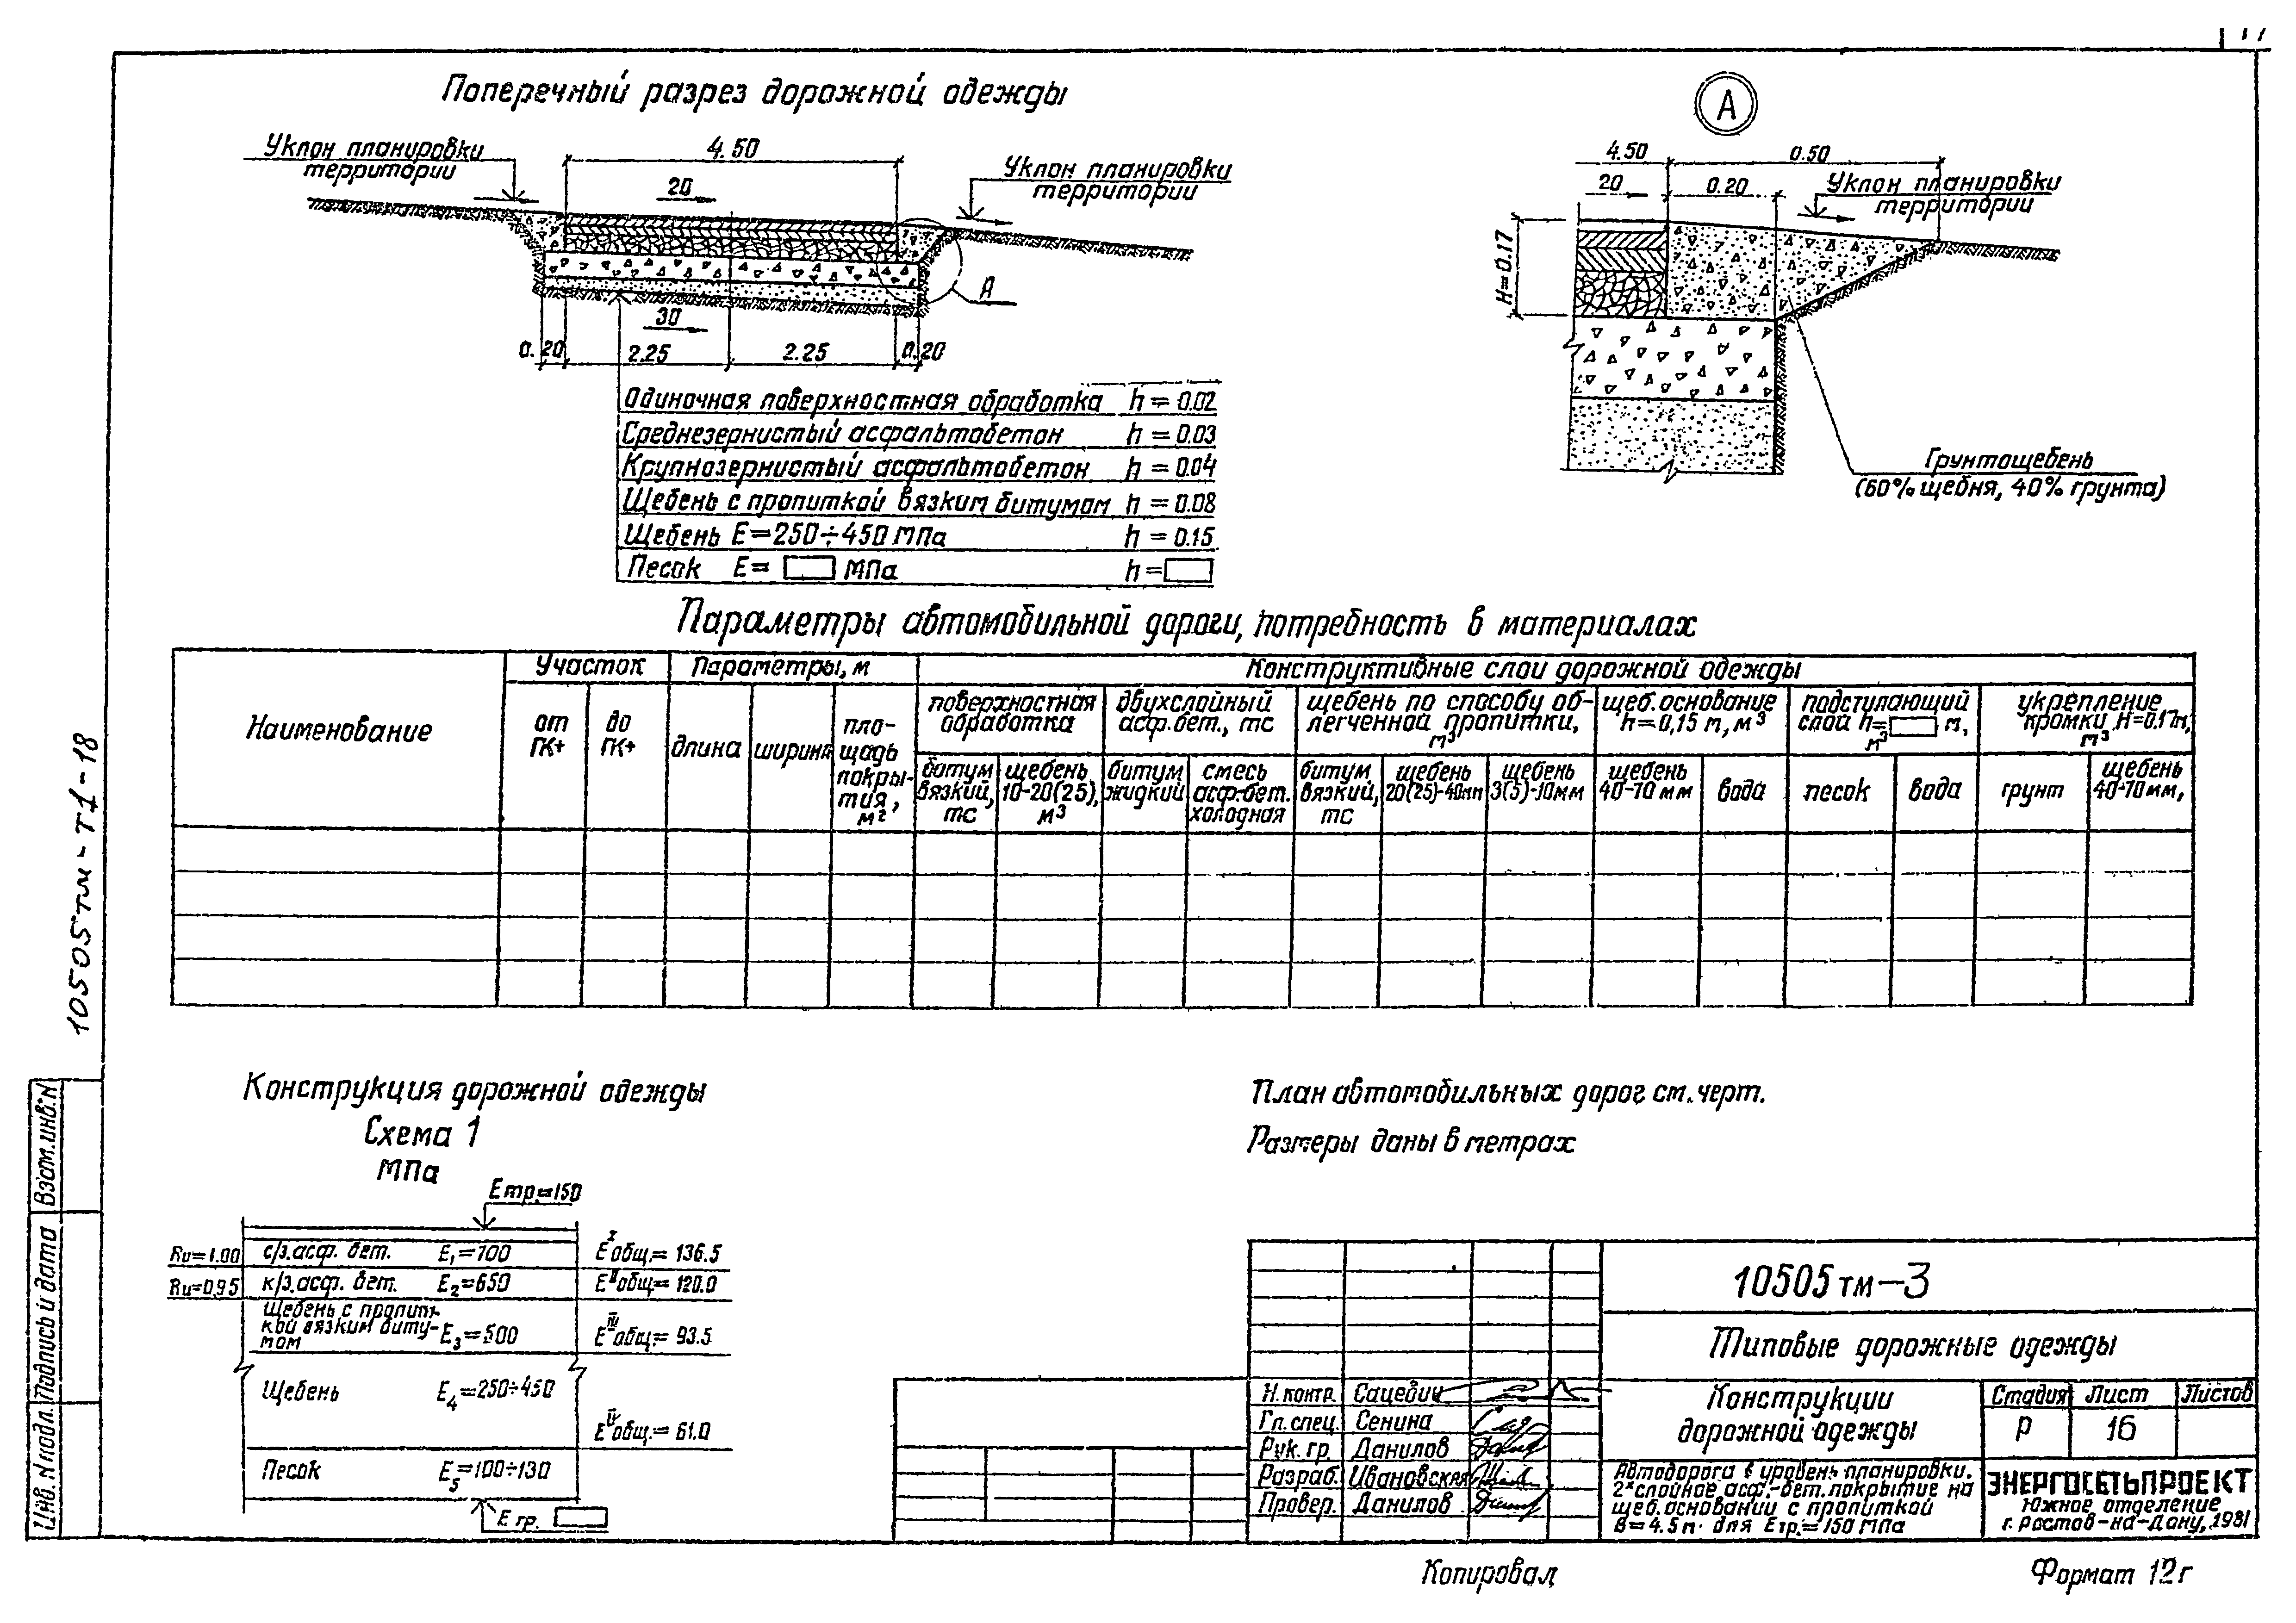 17
Поперечный разрез дорожной одежды
Уклон планировки
территории
4.50
20
Уклон планировки
территории
А
30
0.20
2.25
2.25
0.20
Одиночная поверхностная обработка h = 0.02
Среднезернистый асфальтобетон h = 0.03
Крупнозернистый асфальтобетон h = 0.04
Щебень с пропиткой вязким битумом h = 0.08
Щебень E=250÷450 МПа h = 0.15
Песок E= МПа h=
А
4.50
0.50
20
0.20
Уклон планировки
территории
H=0.17
Грунтощебень
(60% щебня, 40% грунта)
Параметры автомобильной дороги, потребность в материалах
Наименование
Участок
от
ПК+
до
ПК+
Параметры, м
длина
ширина
пло-
щадь
покры-
тия,
м²
Конструктивные слои дорожной одежды
поверхностная
обработка
битум
вязкий,
тс
щебень
10-20(25),
м³
двухслойный
асф.бет., тс
битум
жидкий
смесь
асф-бет.
холодная
щебень по способу об-
легченной пропитки,
м³
битум
вязкий,
тс
щебень
20(25)-40мм
щебень
3(5)-10мм
щеб.основание
h=0,15 м, м³
щебень
40-70 мм
вода
подстилающий
слой h= м,
м³
песок
вода
укрепление
кромки H=0.17м,
м³
грунт
щебень
40-70мм,
Конструкция дорожной одежды
Схема 1
МПа
Eтр.=150
Ru=1.00 с/з.асф. бет. E₁=700 Eᴵобщ.= 136.5
Ru=0.95 к/з.асф. бет. E₂=650 Eᴵᴵобщ.= 120.0
Щебень с пропит-
кой вязким биту-
мом
E₃=500 Eᴵᴵᴵобщ.= 93.5
Щебень E₄=250÷450
Eᴵⱽобщ.= 61.0
Песок E₅=100÷130
E гр.
План автомобильных дорог см. черт.
Размеры даны в метрах
10505тм-т1-18
Взам.инв.N
Подпись и дата
Инв. N подл.
10505тм-3
Типовые дорожные одежды
Н.контр. Сацевич
Гл.спец. Сенина
Рук. гр. Данилов
Разраб. Ивановская
Провер. Данилов
Конструкции
дорожной одежды
Стадия Лист Листов
Р 16
Автодорога в уровень планировки.
2ˣслойное асф.-бет. покрытие на
щеб.основании с пропиткой
В=4.5м для Eтр.=150 МПа
ЭНЕРГОСЕТЬПРОЕКТ
Южное отделение
г. Ростов-на-Дону, 1981
Копировал
Формат 12г